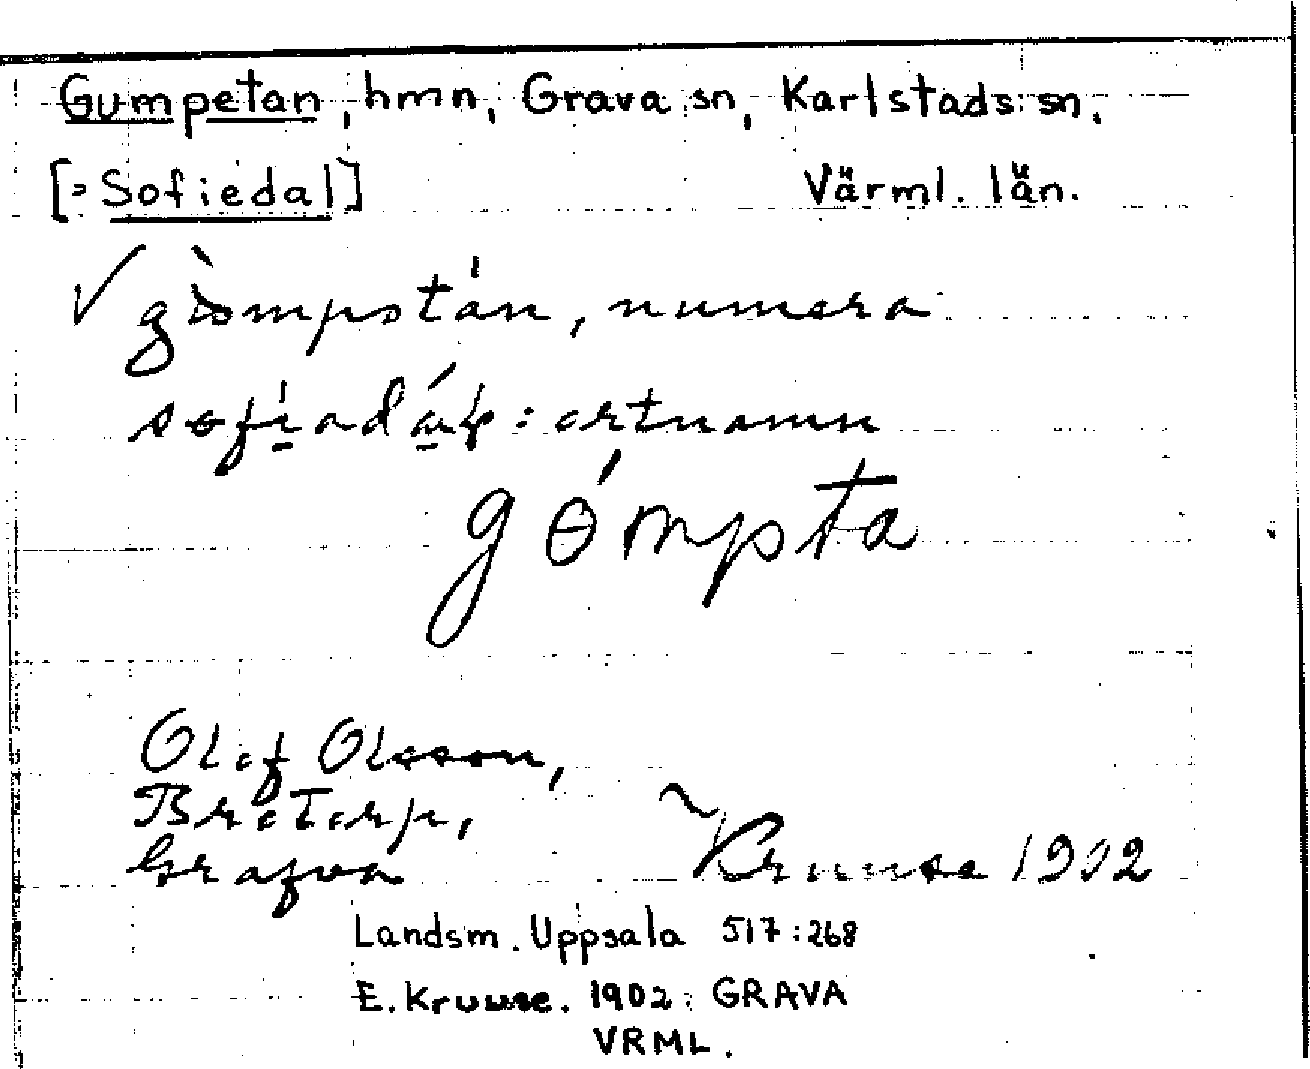 Gumpetan, hmn, Grava sn, Karlstads sn.
[= Sofiedal] Värml. län.
√ gòmpotán, numera
sofíadáɽ: ortnamn
gómpta
Olof Olsson,
Brotorp,
Grafva Kruuse 1902
Landsm. Uppsala 517:268
E. Kruuse. 1902: GRAVA
VRML.